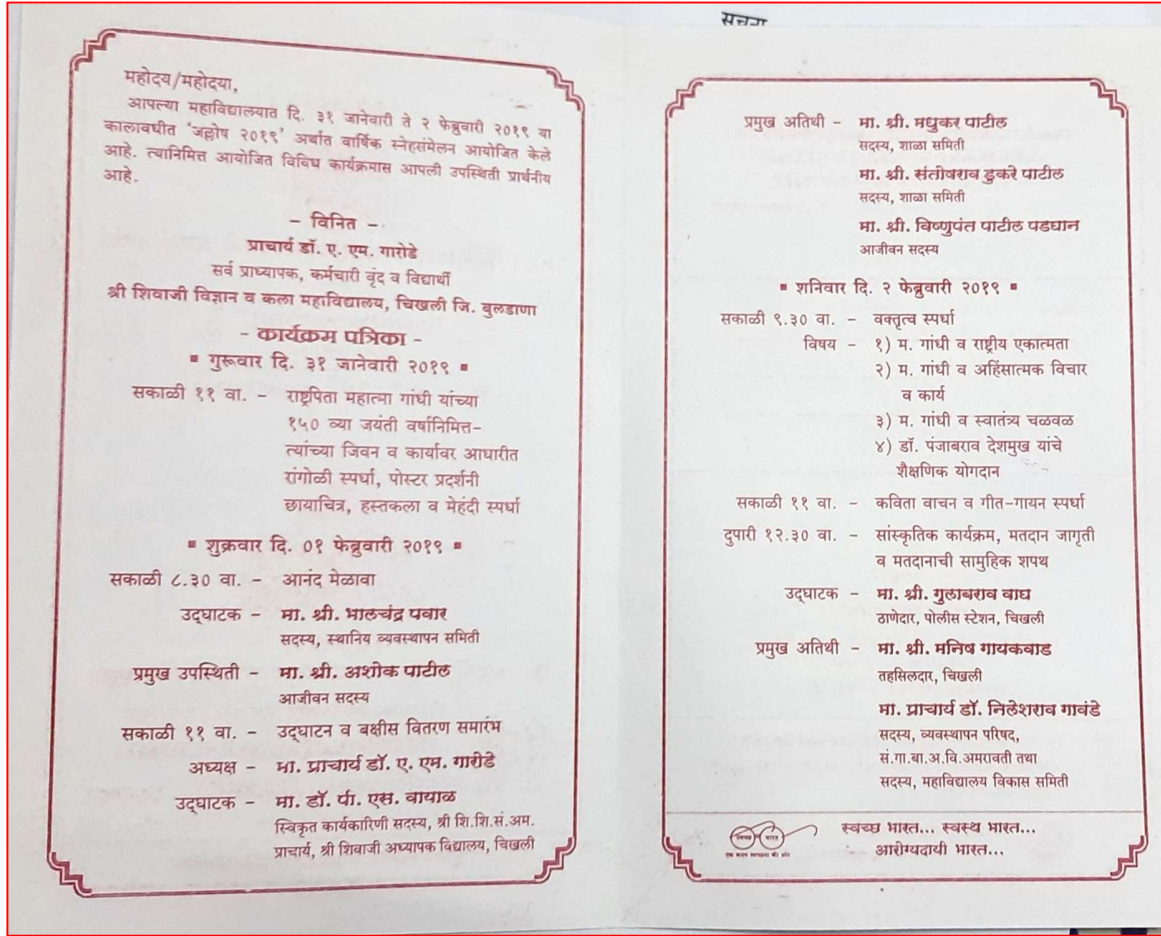 महोदय/महोदया,
आपल्या महाविद्यालयात दि. ३१ जानेवारी ते २ फेब्रुवारी २०१९ या
कालावधीत 'जल्लोष २०१९' अर्थात वार्षिक स्नेहसंमेलन आयोजित केले
आहे. त्यानिमित्त आयोजित विविध कार्यक्रमास आपली उपस्थिती प्रार्थनीय
आहे.
- विनित -
प्राचार्य डॉ. ए. एम. गारोडे
सर्व प्राध्यापक, कर्मचारी वृंद व विद्यार्थी
श्री शिवाजी विज्ञान व कला महाविद्यालय, चिखली जि. बुलडाणा
- कार्यक्रम पत्रिका -
▪ गुरूवार दि. ३१ जानेवारी २०१९ ▪
सकाळी ११ वा. - राष्ट्रपिता महात्मा गांधी यांच्या
१५० व्या जयंती वर्षानिमित्त-
त्यांच्या जिवन व कार्यावर आधारीत
रांगोळी स्पर्धा, पोस्टर प्रदर्शनी
छायाचित्र, हस्तकला व मेहंदी स्पर्धा
▪ शुक्रवार दि. ०१ फेब्रुवारी २०१९ ▪
सकाळी ८.३० वा. - आनंद मेळावा
उद्‌घाटक - मा. श्री. भालचंद्र पवार
सदस्य, स्थानिय व्यवस्थापन समिती
प्रमुख उपस्थिती - मा. श्री. अशोक पाटील
आजीवन सदस्य
सकाळी ११ वा. - उद्‌घाटन व बक्षीस वितरण समारंभ
अध्यक्ष - मा. प्राचार्य डॉ. ए. एम. गारोडे
उद्‌घाटक - मा. डॉ. पी. एस. वायाळ
स्विकृत कार्यकारिणी सदस्य, श्री शि.शि.सं.अम.
प्राचार्य, श्री शिवाजी अध्यापक विद्यालय, चिखली
सूचना
प्रमुख अतिथी - मा. श्री. मधुकर पाटील
सदस्य, शाळा समिती
मा. श्री. संतोषराव डुकरे पाटील
सदस्य, शाळा समिती
मा. श्री. विष्णुपंत पाटील पडघान
आजीवन सदस्य
▪ शनिवार दि. २ फेब्रुवारी २०१९ ▪
सकाळी ९.३० वा. - वक्तृत्व स्पर्धा
विषय - १) म. गांधी व राष्ट्रीय एकात्मता
२) म. गांधी व अहिंसात्मक विचार
व कार्य
३) म. गांधी व स्वातंत्र्य चळवळ
४) डॉ. पंजाबराव देशमुख यांचे
शैक्षणिक योगदान
सकाळी ११ वा. - कविता वाचन व गीत-गायन स्पर्धा
दुपारी १२.३० वा. - सांस्कृतिक कार्यक्रम, मतदान जागृती
व मतदानाची सामुहिक शपथ
उद्‌घाटक - मा. श्री. गुलाबराव वाघ
ठाणेदार, पोलीस स्टेशन, चिखली
प्रमुख अतिथी - मा. श्री. मनिष गायकवाड
तहसिलदार, चिखली
मा. प्राचार्य डॉ. निलेशराव गावंडे
सदस्य, व्यवस्थापन परिषद,
सं.गा.बा.अ.वि.अमरावती तथा
सदस्य, महाविद्यालय विकास समिती
स्वच्छ भारत
एक कदम स्वच्छता की ओर
स्वच्छ भारत... स्वस्थ भारत...
आरोग्यदायी भारत...